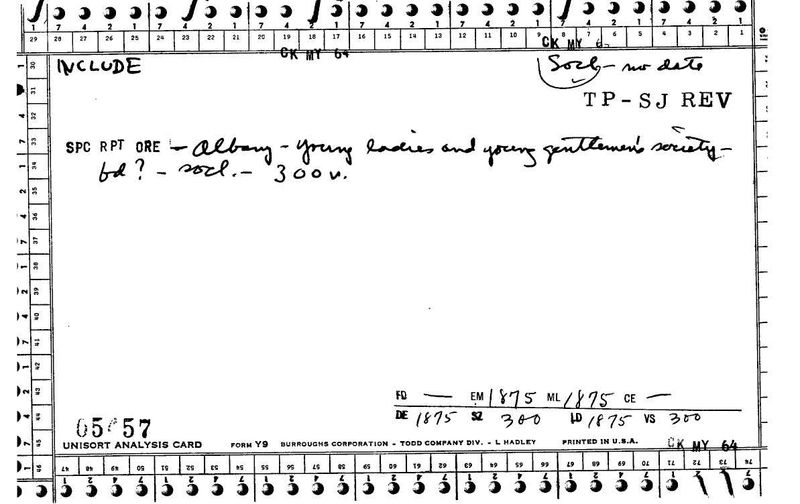 1 7 4 2 1 7 4 2 1 7 4 2 1 7 4 2 1 7 4 2 1 7 4 2 1 7 4 2 1
29 28 27 26 25 24 23 22 21 20 19 18 17 16 15 14 13 12 11 10 9 8 7 6 5 4 3 2 1
CK MY 64 CK MY 6
INCLUDE Socl - no date
TP-SJ REV
SPC RPT ORE - Albany - young ladies and young gentlemen's society -
bd? - socl. - 300 v.
FD — EM 1875 ML 1875 CE —
DE 1875 SZ 300 LD 1875 VS 300
57
UNISORT ANALYSIS CARD FORM Y9 BURROUGHS CORPORATION - TODD COMPANY DIV. - L HADLEY PRINTED IN U.S.A. CK MY 64
47 48 49 50 51 52 53 54 55 56 57 58 59 60 61 62 63 64 65 66 67 68 69 70 71 72 73 74